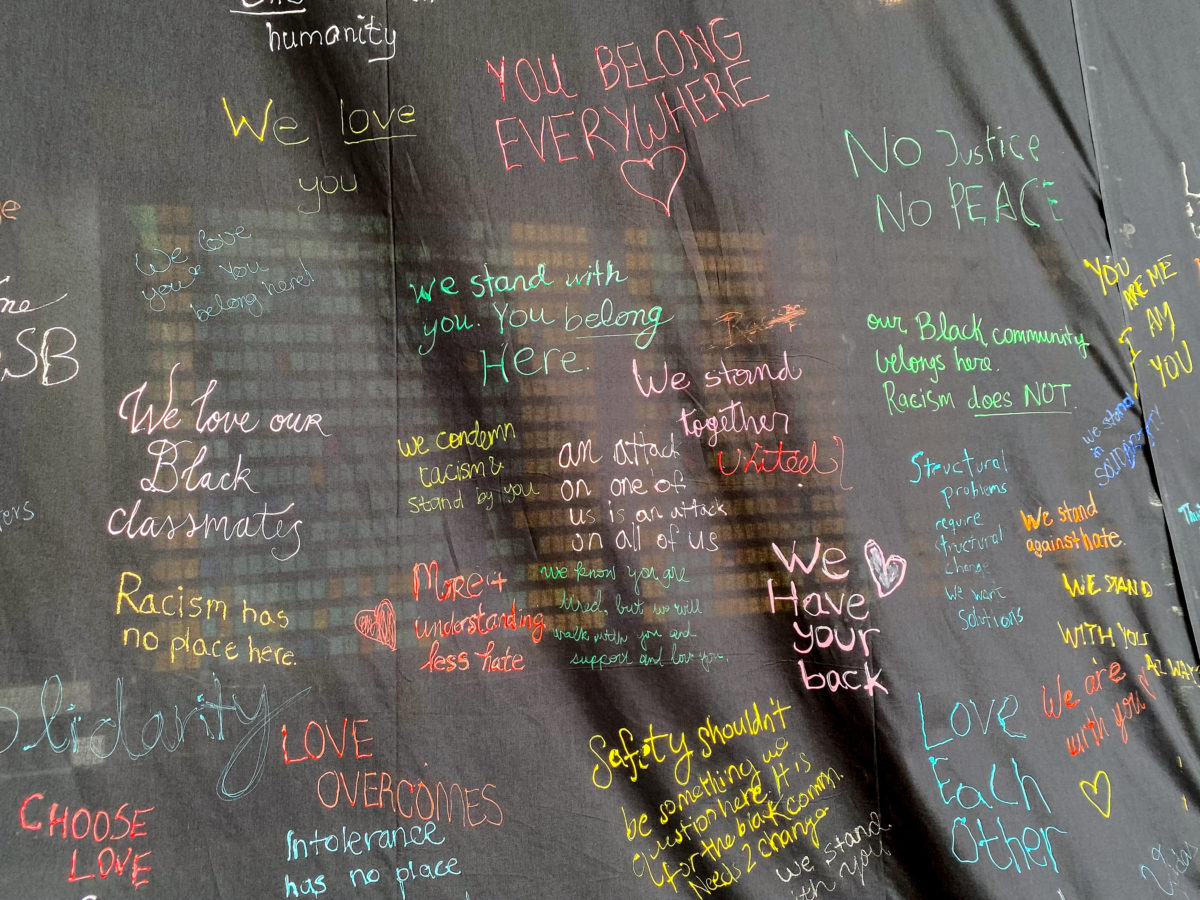 humanity
YOU BELONG
EVERYWHERE
We love
you
No Justice
No PEACE
We love
you & you
belong here!
we stand with
you. You belong
Here.
YOU
ARE ME
I AM
YOU
our Black community
belongs here.
Racism does NOT.
SB
We stand
together
united
We love our
Black
classmates
we condemn
racism &
stand by you
an attack
on one of
us is an attack
on all of us
we stand
in
Structural
problems
require
structural
change
We want
Solutions
We stand
against hate.
We
Have
your
back
Racism has
no place here.
More
understanding
less hate
we know you are
tired, but we will
walk with you and
support and love you.
WE STAND
WITH YOU
ALWAYS
We are
with you
olidarity
LOVE
OVERCOMES
CHOOSE
LOVE
Intolerance
has no place
Safety shouldn't
be something we
question here. It is
for the black comm.
Needs 2 change
we stand
with you
Love
Each
Other